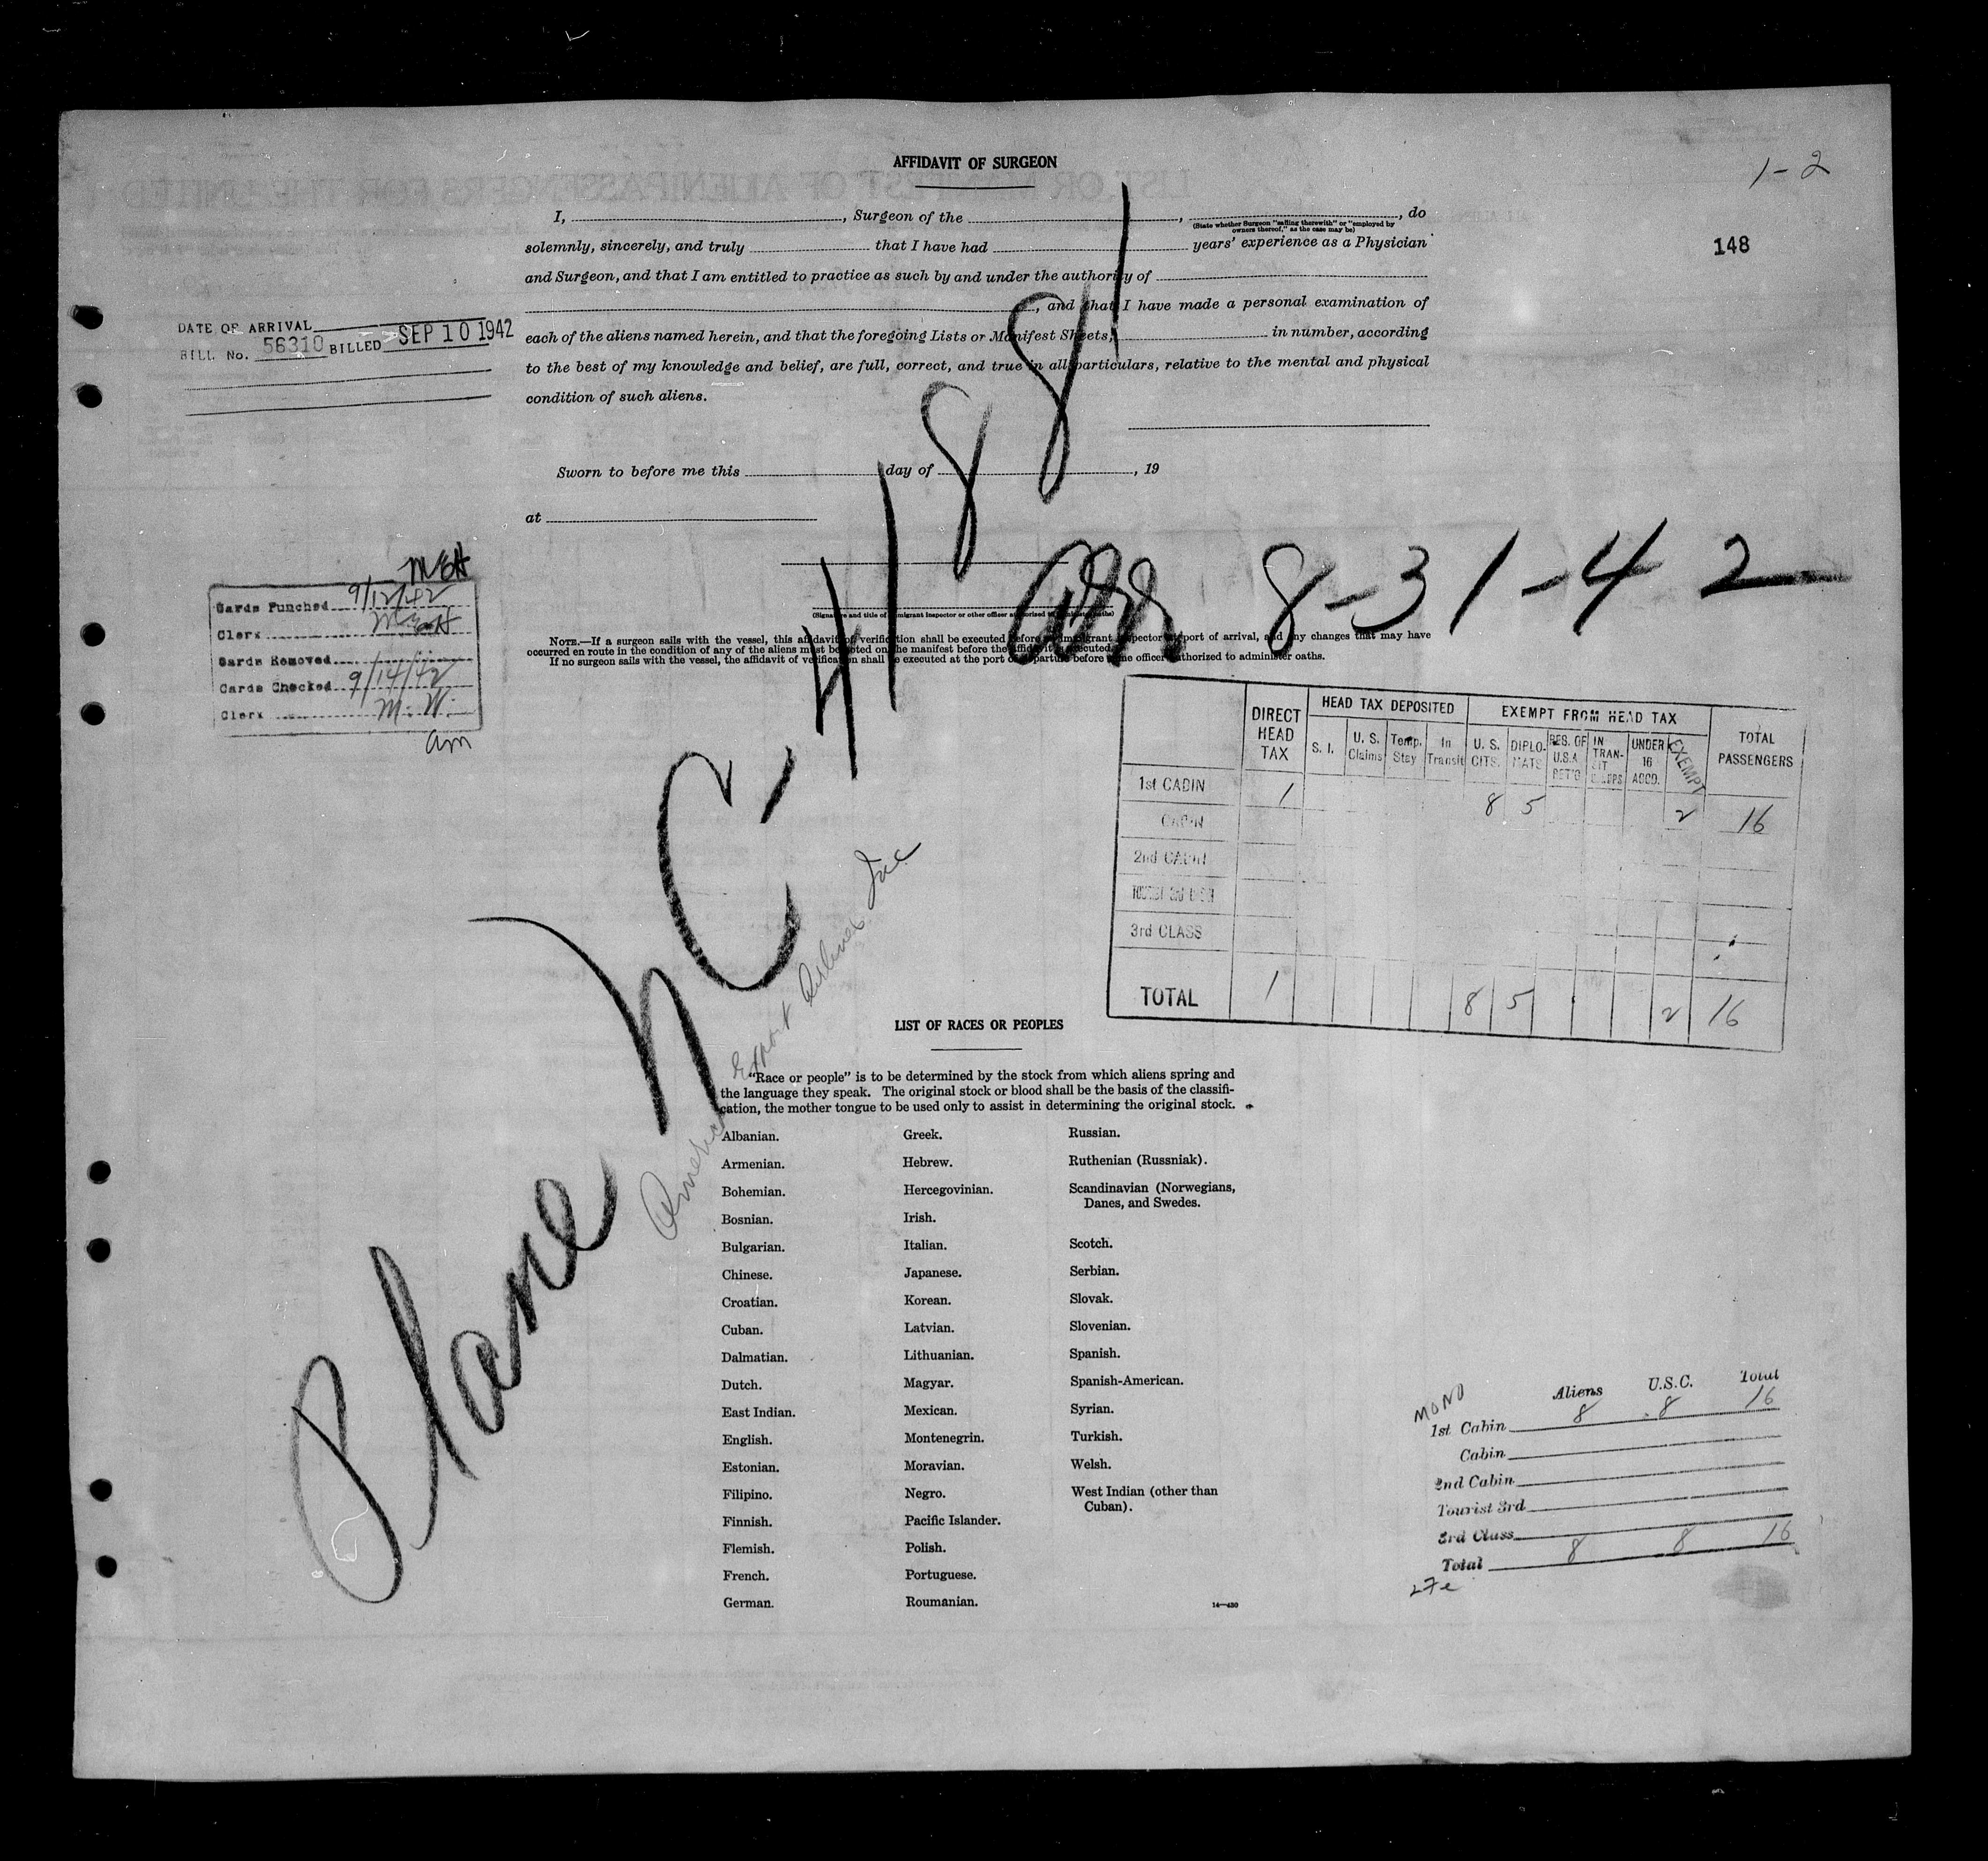 AFFIDAVIT OF SURGEON
1-2
148
I, , Surgeon of the , , do
(State whether Surgeon "sailing therewith" or "employed by
owners thereof," as the case may be)
solemnly, sincerely, and truly that I have had years' experience as a Physician
and Surgeon, and that I am entitled to practice as such by and under the authority of
, and that I have made a personal examination of
each of the aliens named herein, and that the foregoing Lists or Manifest Sheets, in number, according
to the best of my knowledge and belief, are full, correct, and true in all particulars, relative to the mental and physical
condition of such aliens.
DATE OF ARRIVAL
BILL No. 56310 BILLED SEP 10 1942
Sworn to before me this day of , 19
at
(Signature and title of immigrant inspector or other officer authorized to administer oaths)
NOTE.—If a surgeon sails with the vessel, this affidavit of verification shall be executed before an immigrant inspector at port of arrival, and any changes that may have
occurred en route in the condition of any of the aliens must be noted on the manifest before the affidavit is executed.
If no surgeon sails with the vessel, the affidavit of verification shall be executed at the port of departure before some officer authorized to administer oaths.
Plane NC-41881
Arr 8-31-42
American Export Airlines Inc
McH
Cards Punched 9/12/42
Clerk McH
Cards Removed
Cards Checked 9/14/42
Clerk M.W.
am
DIRECT HEAD TAX
HEAD TAX DEPOSITED
EXEMPT FROM HEAD TAX
TOTAL PASSENGERS
S. I. U. S. Claims Temp. Stay In Transit U. S. CITS. DIPLO-MATS RES. OF U.S.A. RET'G IN TRAN-SIT UNDER 16 ACCD. EXEMPT
1st CABIN 1 8 5 2 16
CABIN
2nd CABIN
TOURIST 3rd
3rd CLASS
TOTAL 1 8 5 2 16
LIST OF RACES OR PEOPLES
"Race or people" is to be determined by the stock from which aliens spring and
the language they speak. The original stock or blood shall be the basis of the classifi-
cation, the mother tongue to be used only to assist in determining the original stock.
Albanian.
Armenian.
Bohemian.
Bosnian.
Bulgarian.
Chinese.
Croatian.
Cuban.
Dalmatian.
Dutch.
East Indian.
English.
Estonian.
Filipino.
Finnish.
Flemish.
French.
German.
Greek.
Hebrew.
Hercegovinian.
Irish.
Italian.
Japanese.
Korean.
Latvian.
Lithuanian.
Magyar.
Mexican.
Montenegrin.
Moravian.
Negro.
Pacific Islander.
Polish.
Portuguese.
Roumanian.
Russian.
Ruthenian (Russniak).
Scandinavian (Norwegians,
Danes, and Swedes.
Scotch.
Serbian.
Slovak.
Slovenian.
Spanish.
Spanish-American.
Syrian.
Turkish.
Welsh.
West Indian (other than
Cuban).
14—430
MONO
Aliens U.S.C. Total
1st Cabin 8 8 16
Cabin
2nd Cabin
Tourist 3rd
3rd Class
Total 8 8 16